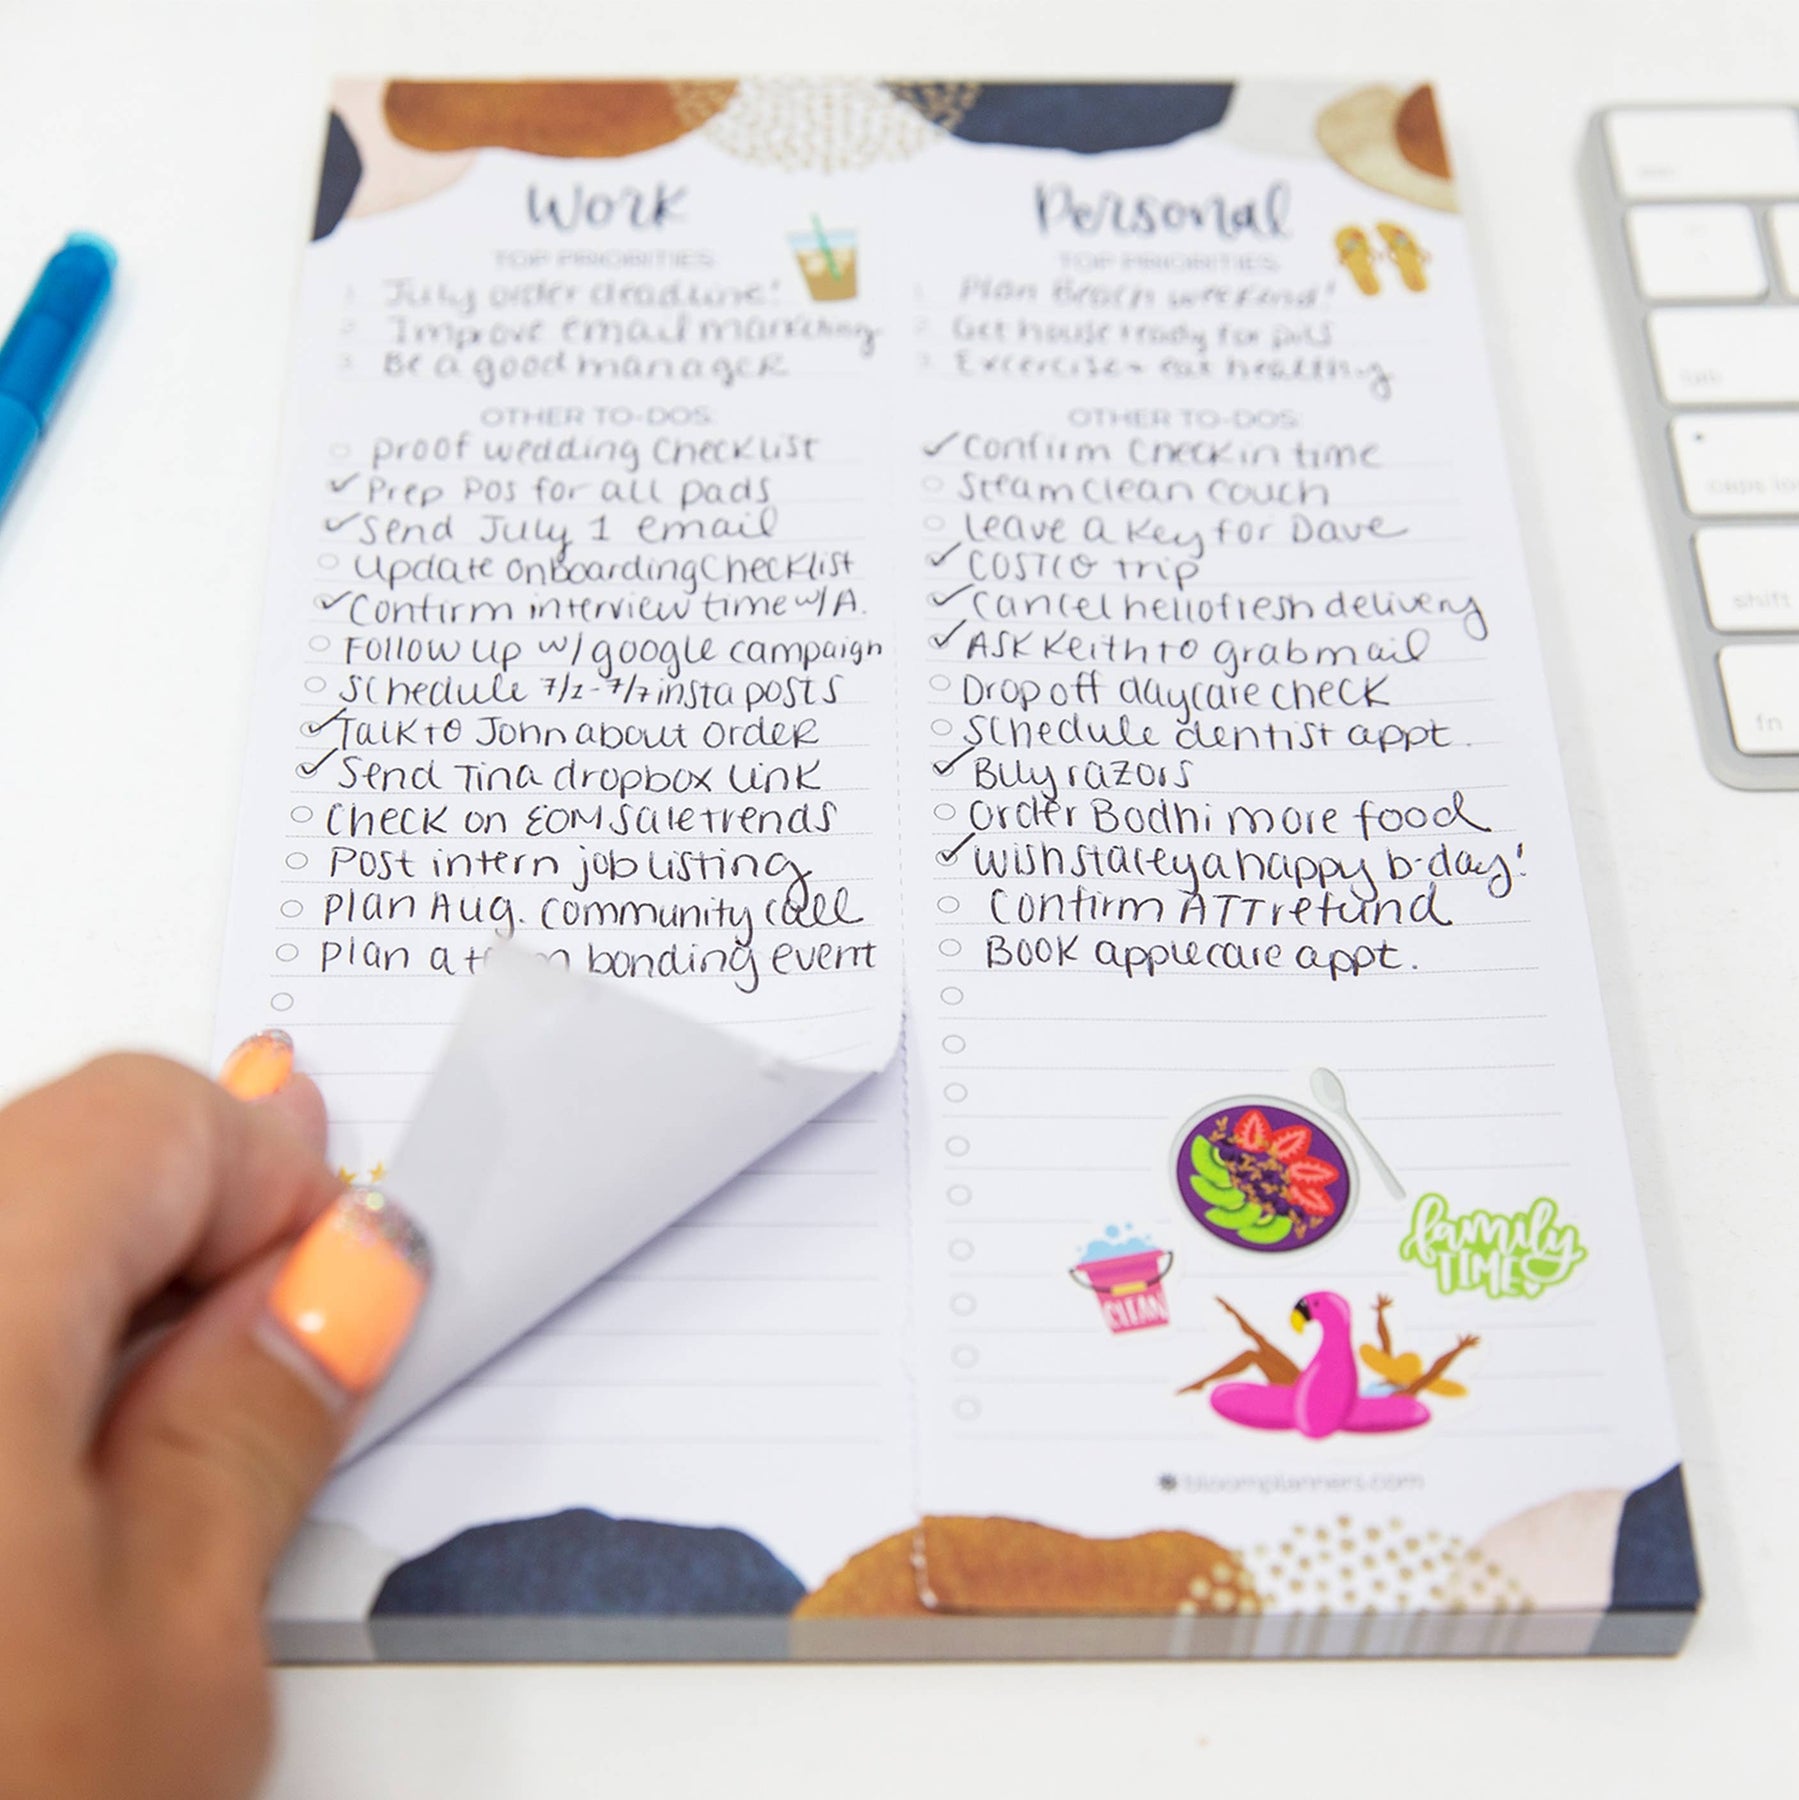 Work
TOP PRIORITIES:
1. July order deadline!
2. Improve email marketing
3. Be a good manager
OTHER TO-DOS:
proof wedding checklist
✓ Prep POs for all pads
✓ Send July 1 email
Update onboarding checklist
✓ Confirm interview time w/ A.
Follow up w/ google campaign
Schedule 7/1-7/7 insta posts
✓ Talk to John about order
✓ Send Tina dropbox link
Check on EOM sale trends
Post intern job listing
Plan Aug. community call
Plan a bonding event
Personal
TOP PRIORITIES:
1. Plan Beach weekend!
2. Get house ready for
3. Excercise + eat healthy
OTHER TO-DOS:
✓ Confirm check in time
Steam clean couch
leave a key for Dave
✓ COSTCO trip
✓ cancel hellofresh delivery
✓ ASK Keith to grab mail
Drop off daycare check
Schedule dentist appt.
✓ Buy razors
Order Bodhi more food
✓ wish stacey a happy b-day!
Confirm ATT refund
Book applecare appt.
family
TIME
CLEAN
bloomplanners.com
caps lo
shift
fn